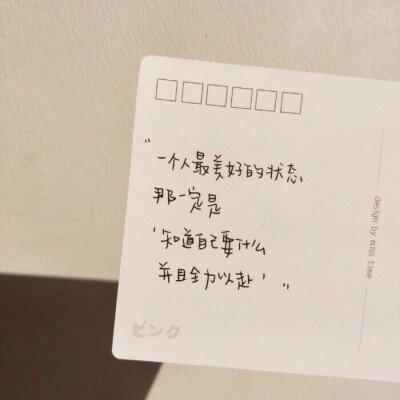 "一个人最美好的状态
那一定是
'知道自己要什么
并且全力以赴'"
design by miss time
ピンク